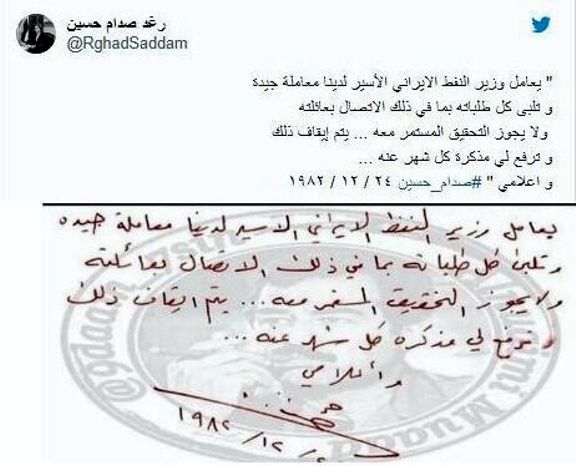 رغد صدام حسين
@RghadSaddam
" يعامل وزير النفط الايراني الأسير لدينا معاملة جيدة
و تلبى كل طلباته بما في ذلك الاتصال بعائلته
ولا يجوز التحقيق المستمر معه ... يتم إيقاف ذلك
و ترفع لي مذكرة كل شهر عنه ...
و اعلامي " #صدام_حسين ٢٤ / ١٢ / ١٩٨٢
يعامل وزير النفط الايراني الاسير لدينا معاملة جيده
وتلبى كل طلباته بما في ذلك الاتصال بعائلته
ولا يجوز التحقيق المستمر معه ... يتم ايقاف ذلك
وترفع لي مذكره كل شهر عنه ...
وأعلامي
١٩٨٢/١٢/